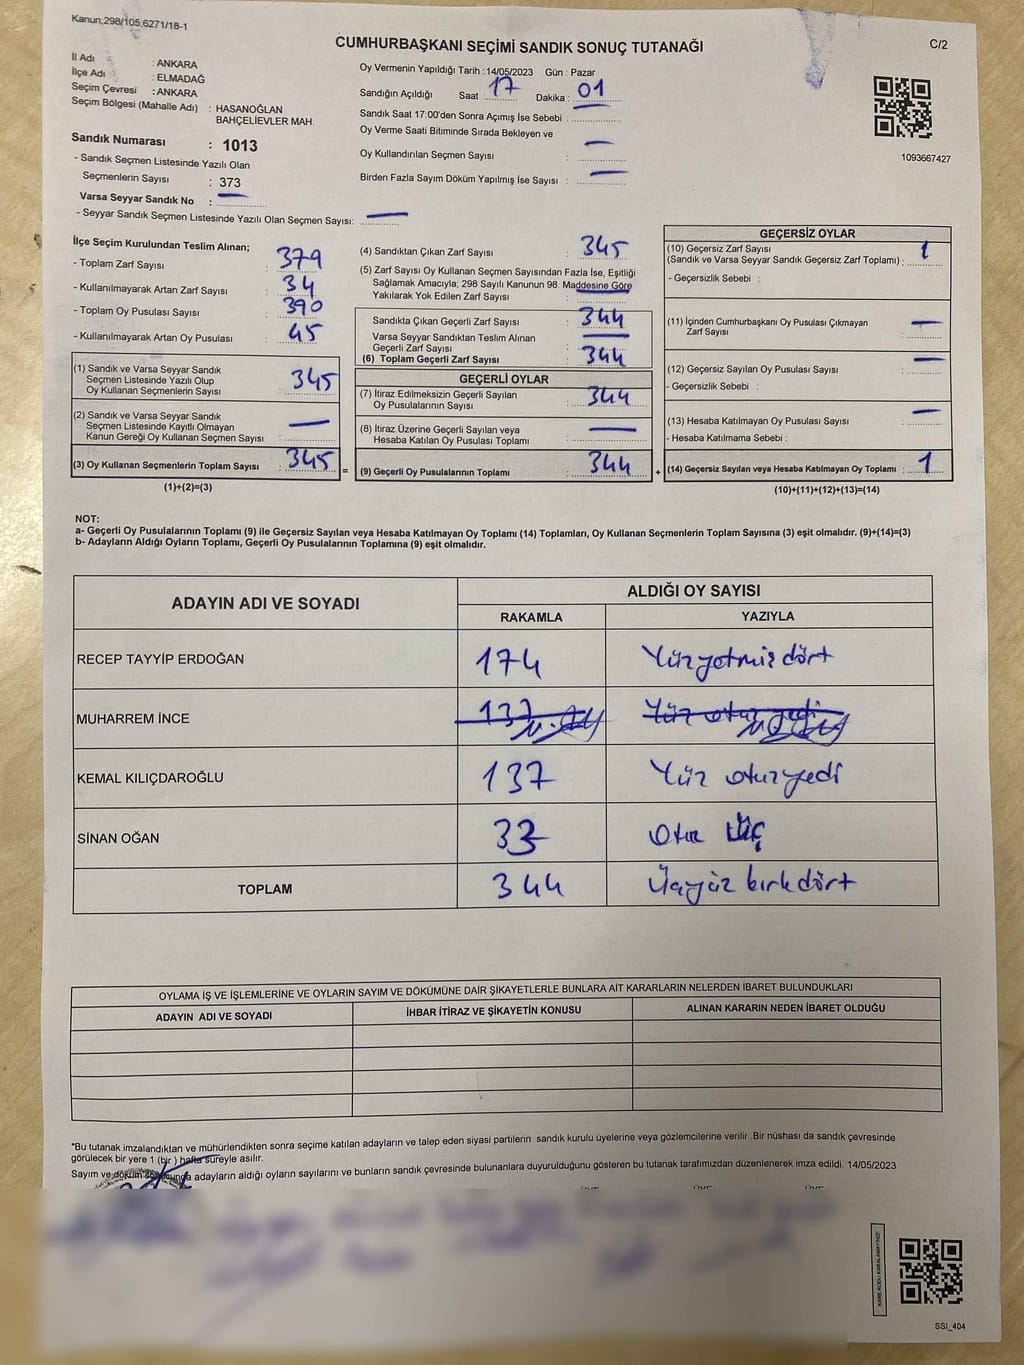 Kanun,298/105,6271/18-1
CUMHURBAŞKANI SEÇİMİ SANDIK SONUÇ TUTANAĞI
C/2
İl Adı : ANKARA
İlçe Adı : ELMADAĞ
Seçim Çevresi : ANKARA
Seçim Bölgesi (Mahalle Adı) : HASANOĞLAN
BAHÇELİEVLER MAH.
Sandık Numarası : 1013
- Sandık Seçmen Listesinde Yazılı Olan
Seçmenlerin Sayısı : 373
Varsa Seyyar Sandık No : —
- Seyyar Sandık Seçmen Listesinde Yazılı Olan Seçmen Sayısı: —
Oy Vermenin Yapıldığı Tarih :14/05/2023 Gün : Pazar
Sandığın Açıldığı Saat : 17 Dakika : 01
Sandık Saat 17:00'den Sonra Açımış İse Sebebi :
Oy Verme Saati Bitiminde Sırada Bekleyen ve
Oy Kullandırılan Seçmen Sayısı : —
Birden Fazla Sayım Döküm Yapılmış İse Sayısı : —
1093667427
İlçe Seçim Kurulundan Teslim Alınan;
- Toplam Zarf Sayısı : 379
- Kullanılmayarak Artan Zarf Sayısı : 34
- Toplam Oy Pusulası Sayısı : 390
- Kullanılmayarak Artan Oy Pusulası : 45
(1) Sandık ve Varsa Seyyar Sandık
Seçmen Listesinde Yazılı Olup
Oy Kullanan Seçmenlerin Sayısı : 345
(2) Sandık ve Varsa Seyyar Sandık
Seçmen Listesinde Kayıtlı Olmayan
Kanun Gereği Oy Kullanan Seçmen Sayısı : —
(3) Oy Kullanan Seçmenlerin Toplam Sayısı : 345 =
(1)+(2)=(3)
(4) Sandıktan Çıkan Zarf Sayısı : 345
(5) Zarf Sayısı Oy Kullanan Seçmen Sayısından Fazla İse, Eşitliği
Sağlamak Amacıyla; 298 Sayılı Kanunun 98. Maddesine Göre
Yakılarak Yok Edilen Zarf Sayısı : —
Sandıkta Çıkan Geçerli Zarf Sayısı : 344
Varsa Seyyar Sandıktan Teslim Alınan
Geçerli Zarf Sayısı : —
(6) Toplam Geçerli Zarf Sayısı : 344
GEÇERLİ OYLAR
(7) İtiraz Edilmeksizin Geçerli Sayılan
Oy Pusulalarının Sayısı : 344
(8) İtiraz Üzerine Geçerli Sayılan veya
Hesaba Katılan Oy Pusulası Toplamı : —
(9) Geçerli Oy Pusulalarının Toplamı : 344 +
GEÇERSİZ OYLAR
(10) Geçersiz Zarf Sayısı
(Sandık ve Varsa Seyyar Sandık Geçersiz Zarf Toplamı) : 1
- Geçersizlik Sebebi :
(11) İçinden Cumhurbaşkanı Oy Pusulası Çıkmayan
Zarf Sayısı : —
(12) Geçersiz Sayılan Oy Pusulası Sayısı : —
- Geçersizlik Sebebi :
(13) Hesaba Katılmayan Oy Pusulası Sayısı : —
- Hesaba Katılmama Sebebi :
(14) Geçersiz Sayılan veya Hesaba Katılmayan Oy Toplamı : 1
(10)+(11)+(12)+(13)=(14)
NOT:
a- Geçerli Oy Pusulalarının Toplamı (9) ile Geçersiz Sayılan veya Hesaba Katılmayan Oy Toplamı (14) Toplamları, Oy Kullanan Seçmenlerin Toplam Sayısına (3) eşit olmalıdır. (9)+(14)=(3)
b- Adayların Aldığı Oyların Toplamı, Geçerli Oy Pusulalarının Toplamına (9) eşit olmalıdır.
ADAYIN ADI VE SOYADI ALDIĞI OY SAYISI
RAKAMLA YAZIYLA
RECEP TAYYİP ERDOĞAN 174 Yüzyetmiş dört
MUHARREM İNCE 137 Yüz otuz yedi
KEMAL KILIÇDAROĞLU 137 Yüz otuzyedi
SİNAN OĞAN 33 Otuz üç
TOPLAM 344 Üçyüz kırkdört
OYLAMA İŞ VE İŞLEMLERİNE VE OYLARIN SAYIM VE DÖKÜMÜNE DAİR ŞİKAYETLERLE BUNLARA AİT KARARLARIN NELERDEN İBARET BULUNDUKLARI
ADAYIN ADI VE SOYADI İHBAR İTİRAZ VE ŞİKAYETİN KONUSU ALINAN KARARIN NEDEN İBARET OLDUĞU
*Bu tutanak imzalandıktan ve mühürlendikten sonra seçime katılan adayların ve talep eden siyasi partilerin sandık kurulu üyelerine veya gözlemcilerine verilir .Bir nüshası da sandık çevresinde
görülecek bir yere 1 (bir ) hafta süreyle asılır.
Sayım ve döküm sonucunda adayların aldığı oyların sayılarını ve bunların sandık çevresinde bulunanlara duyurulduğunu gösteren bu tutanak tarafımızdan düzenlenerek imza edildi. 14/05/2023
SSI_404